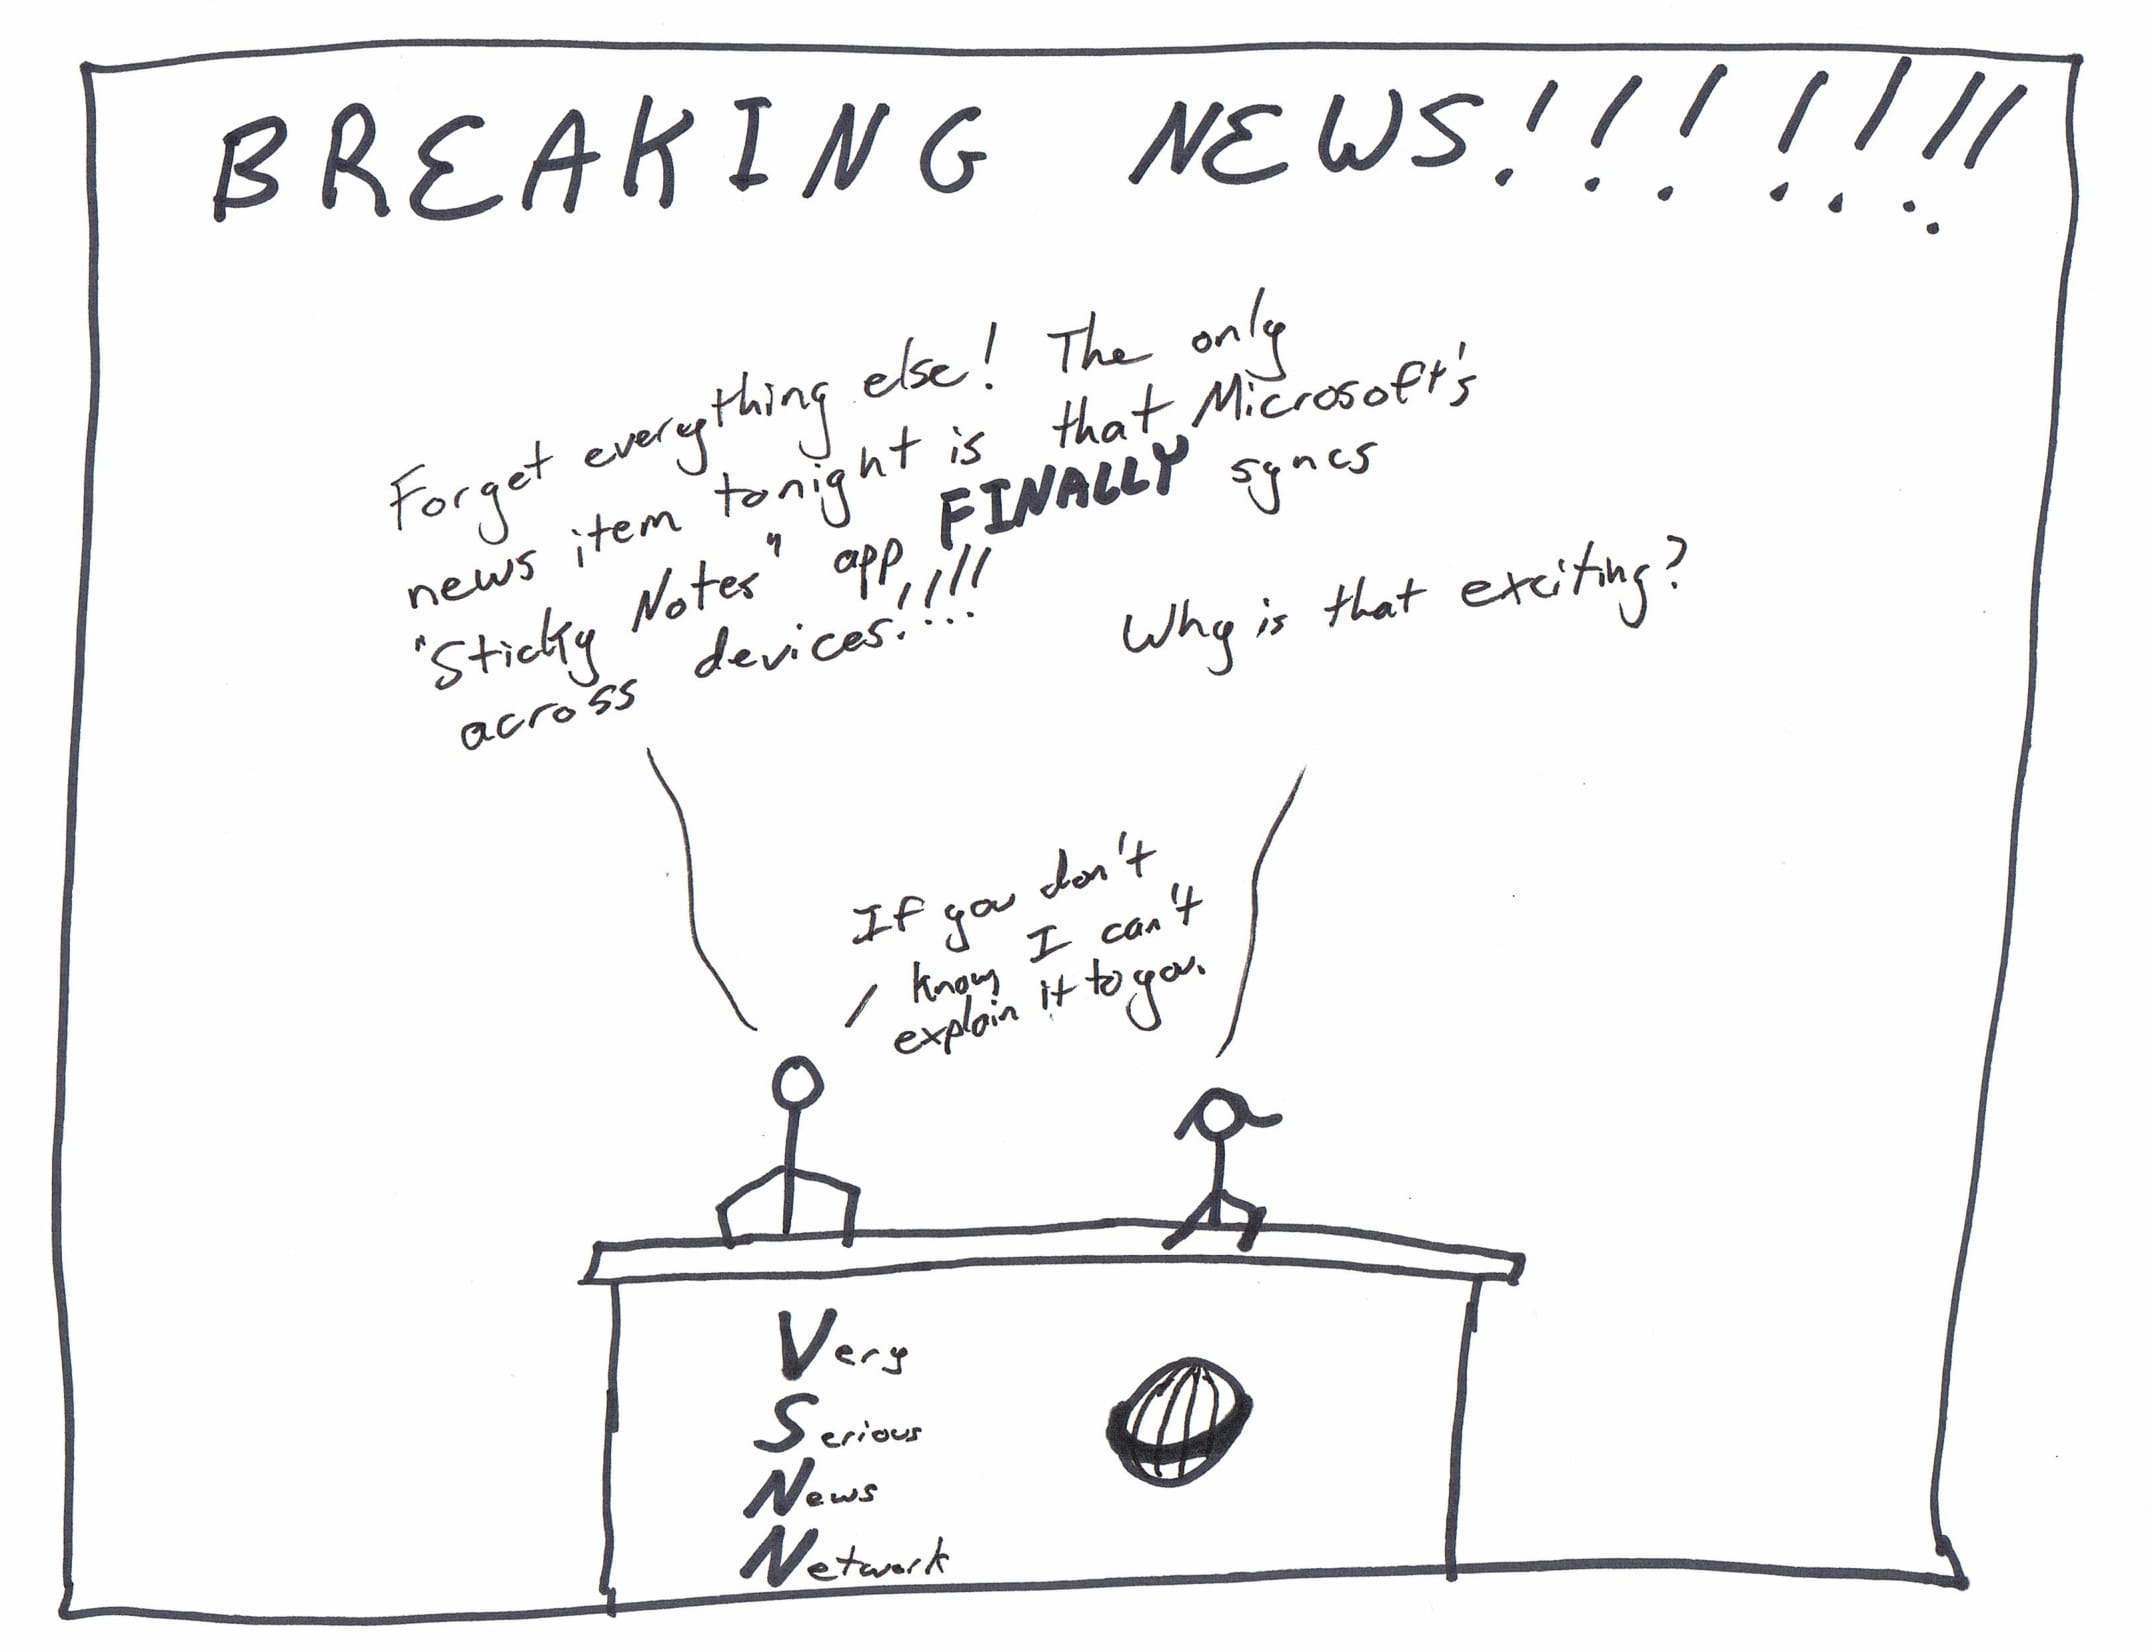 BREAKING NEWS!!!!!!!
Forget everything else! The only
news item tonight is that Microsoft's
"Sticky Notes" app FINALLY syncs
across devices!!!!
Why is that exciting?
If you don't
know, I can't
explain it to you.
Very
Serious
News
Network